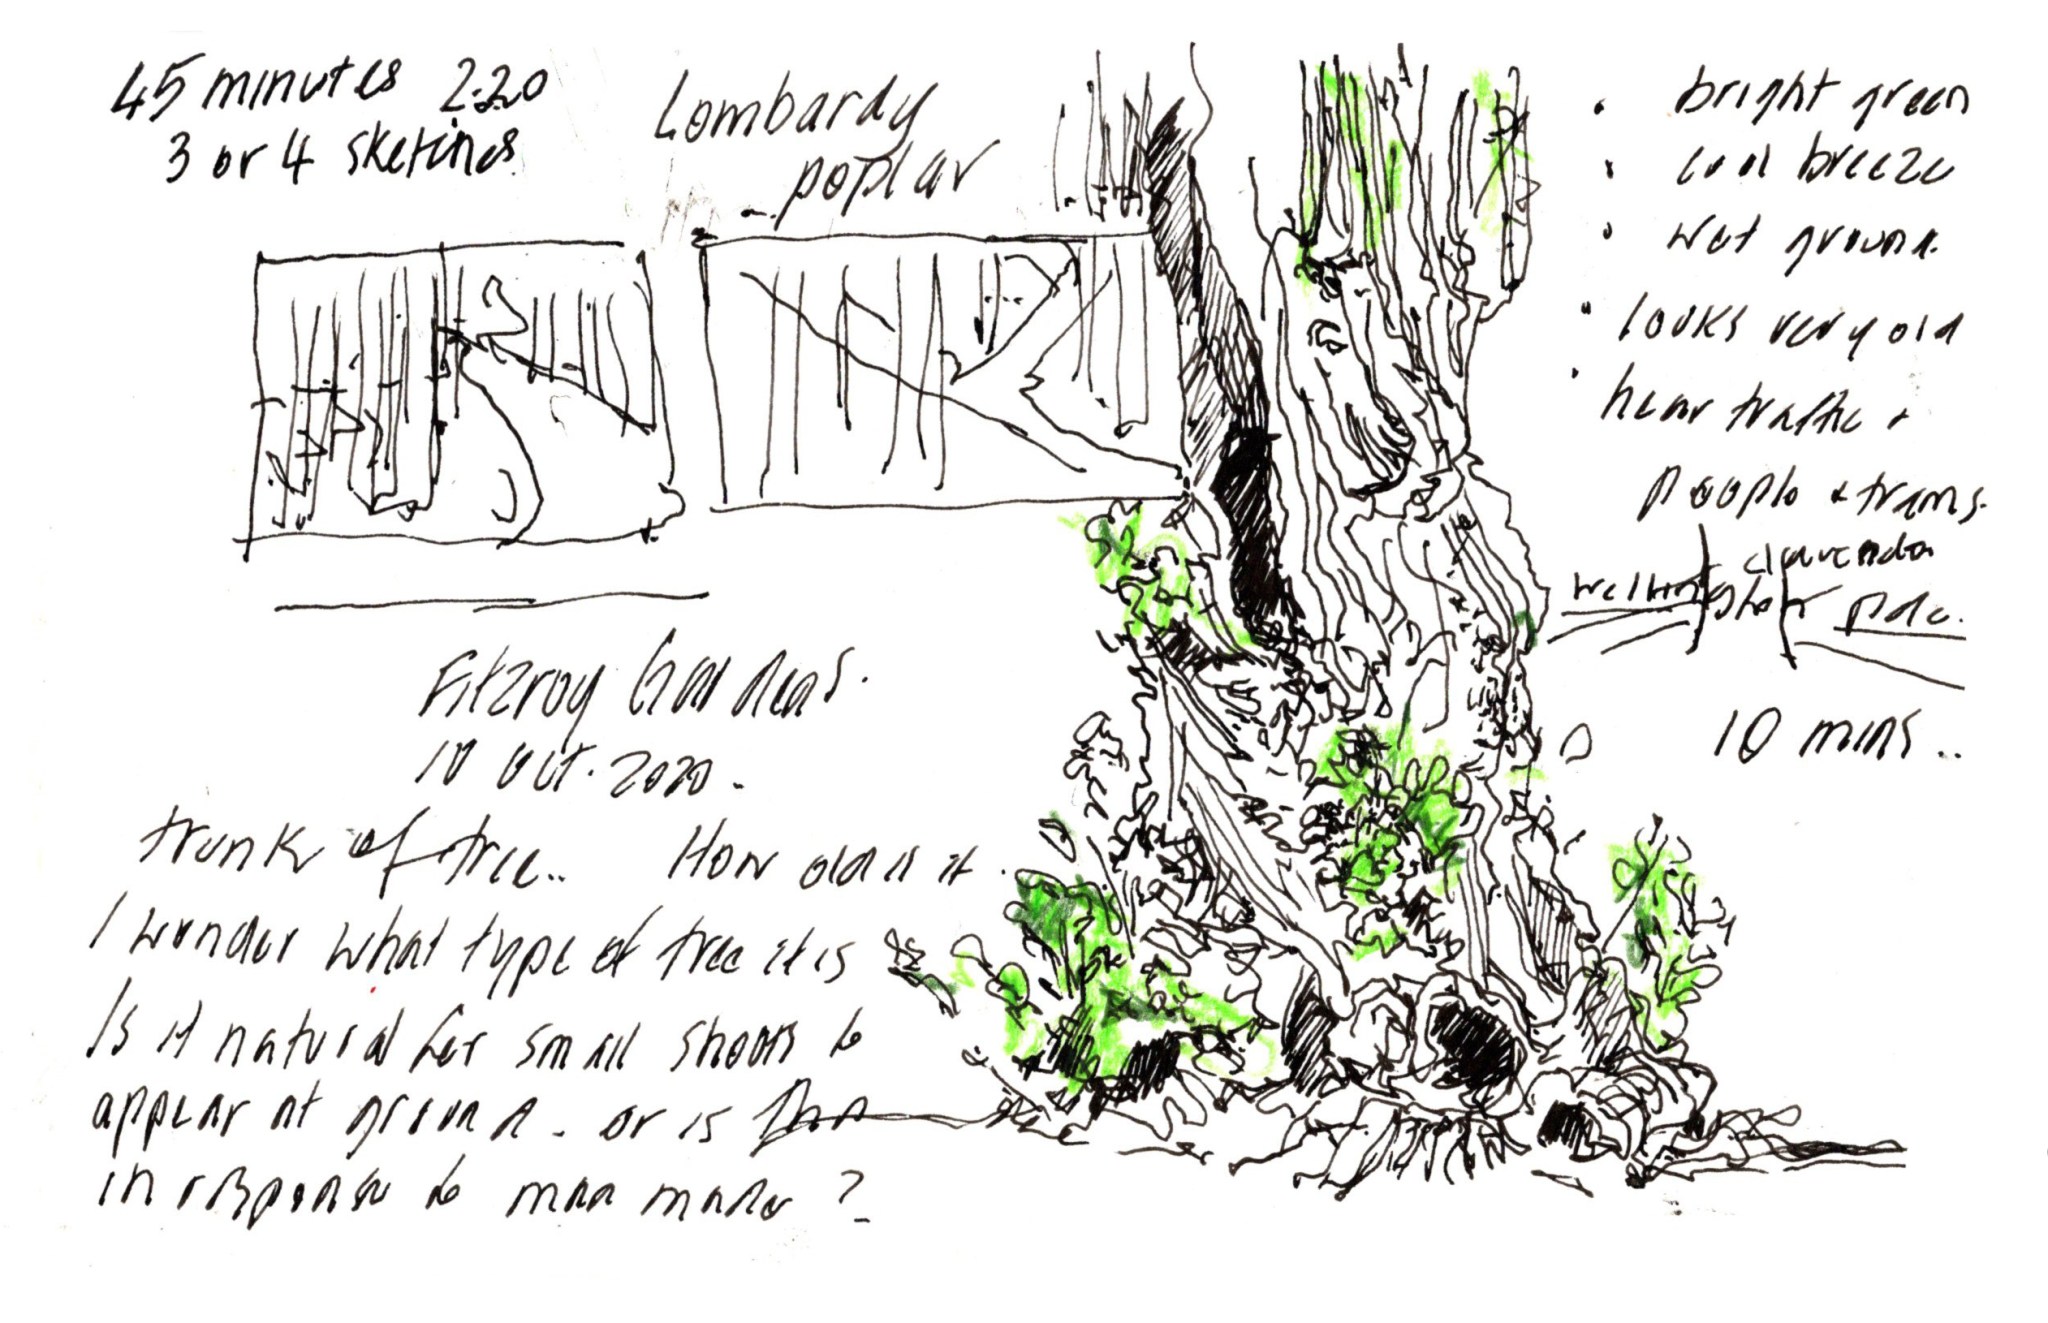 45 minutes 2.20
3 or 4 sketches
Lombardy
poplar
Fitzroy Gardens.
10 Oct. 2020.
trunk of tree.. How old is it.
I wonder what type of tree it is
Is it natural for small shoots to
appear at ground. or is
in response to man made ?
• bright green
• cool breeze
• wet ground.
• looks very old
• hear traffic +
people + trams.
clarendon
wellington
10 mins..